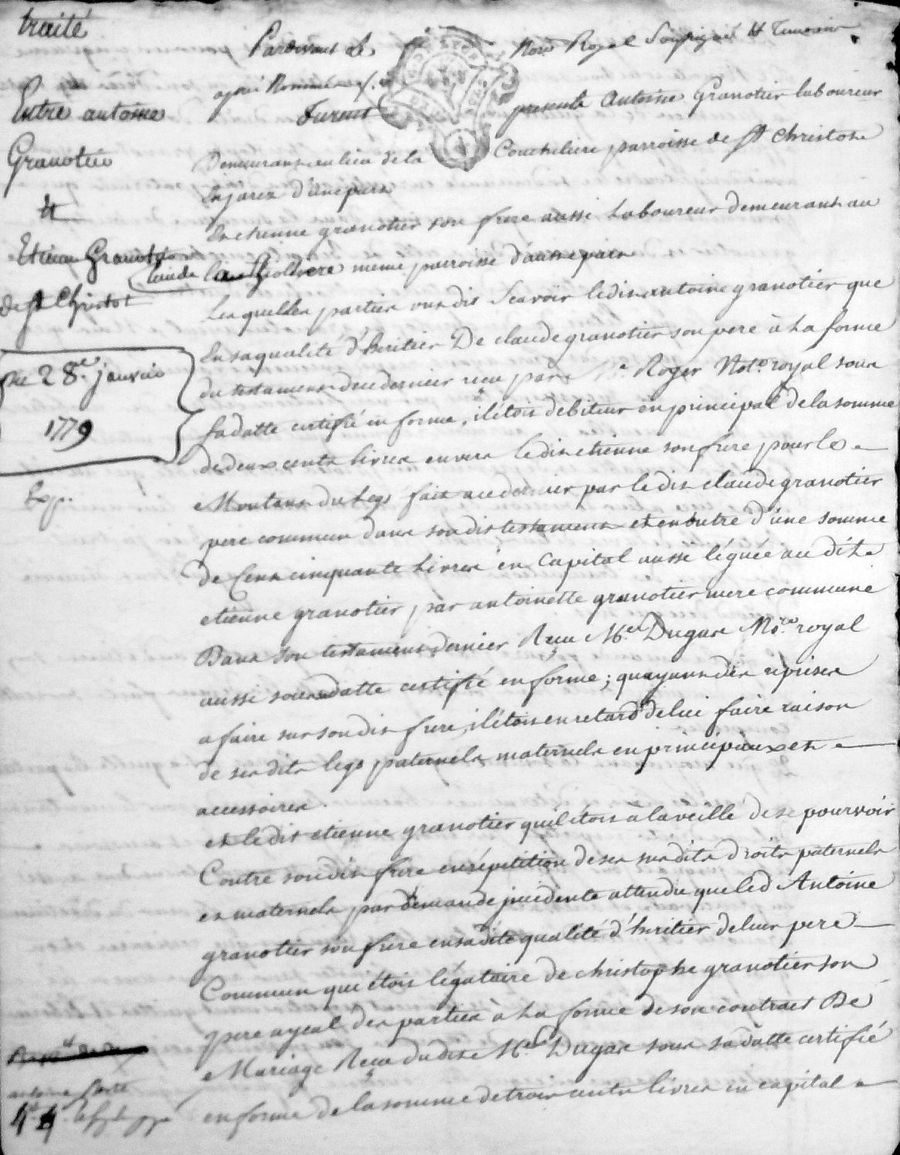 traité
Entre antoine
Granotier
Et
Etienne Granotier
de st Christot
Du 28e janvier
1779
Exp.
Pardevant le Nore Royal Soussigné Et Temoins
après Nommés
Furent presents Antoine Granotier laboureur
Demeurant au lieu de la parroisse de st Christot
Enjarez d'une part
Et etienne granotier son frere aussi Laboureur demeurant au
lieu de même parroisse d'autre part
Lesquelles parties ont dit Scavoir ledit antoine granotier que
En sa qualité d'heritier De claude granotier son pere à La forme
du testament de ce dernier reçu par Me Roger Notre royal sous
sa datte certifié en forme, il étoit débiteur en principal de la somme
de deux cents livres envers ledit etienne son frère pour le
Montant du Legs fait a ce dernier par ledit claude granotier
pere commun dans son dit testament et en outre d'une somme
de Cent cinquante Livres en Capital aussi léguée au dit
etienne granotier par antoinette granotier mere commune
Dans son testament dernier Reçu Me Dugas Nre royal
aussi sous sa datte certifié en forme; qu'ayant des reprises
a faire sur son dit frere, il étoit en retard de lui faire raison
de ses dits legs paternels maternels en principaux et
accessoires.
et le dit etienne granotier qu'il étoit a la veille de se pourvoir
Contre son dit frere en répétition de ses susdits droits paternels
et maternels par demande precedente attendu que led Antoine
granotier son frere en sa dite qualité d'heritier de leur pere
Commun qui étoit légataire de christophe granotier son
pere ayeul des parties a La forme de son contract De
Mariage Reçu du dit Me Dugas sous sa datte certifié
en forme de la somme de trois cents livres en capital
antoine